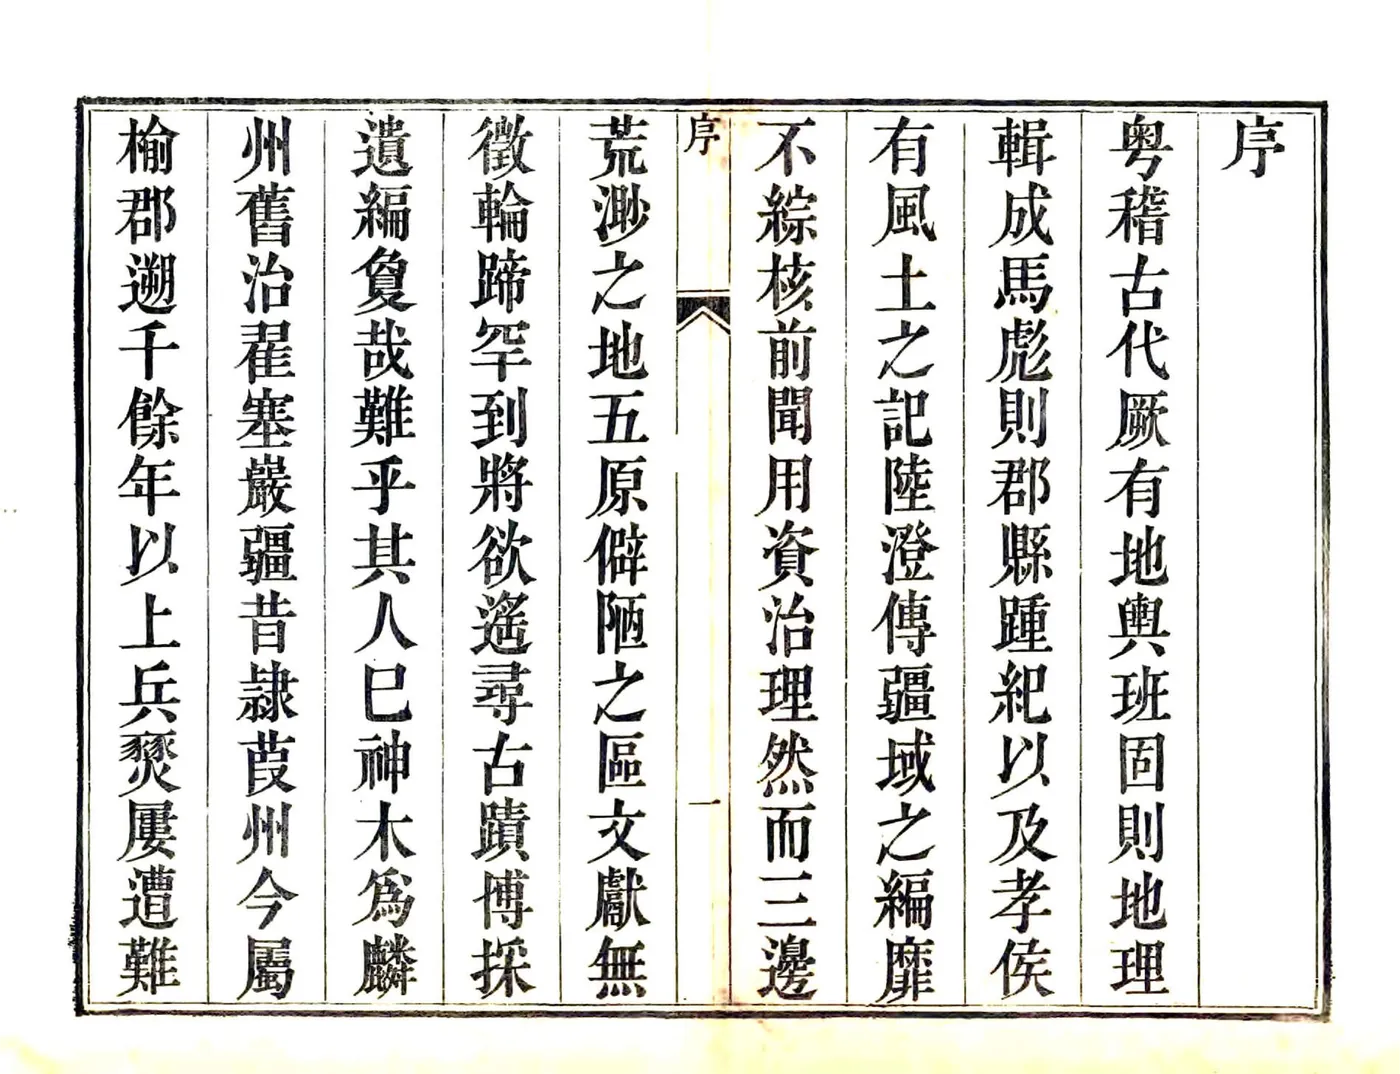 序
粤稽古代厥有地輿班固則地理
輯成馬彪則郡縣踵紀以及孝侯
有風土之記陸澄傳疆域之編靡
不綜核前聞用資治理然而三邊
序
一
荒渺之地五原僻陋之區文獻無
徵輪蹄罕到將欲遙尋古蹟博採
遺編敻哉難乎其人已神木為麟
州舊治翟塞嚴疆昔隸葭州今屬
榆郡遡千餘年以上兵燹屢遭難